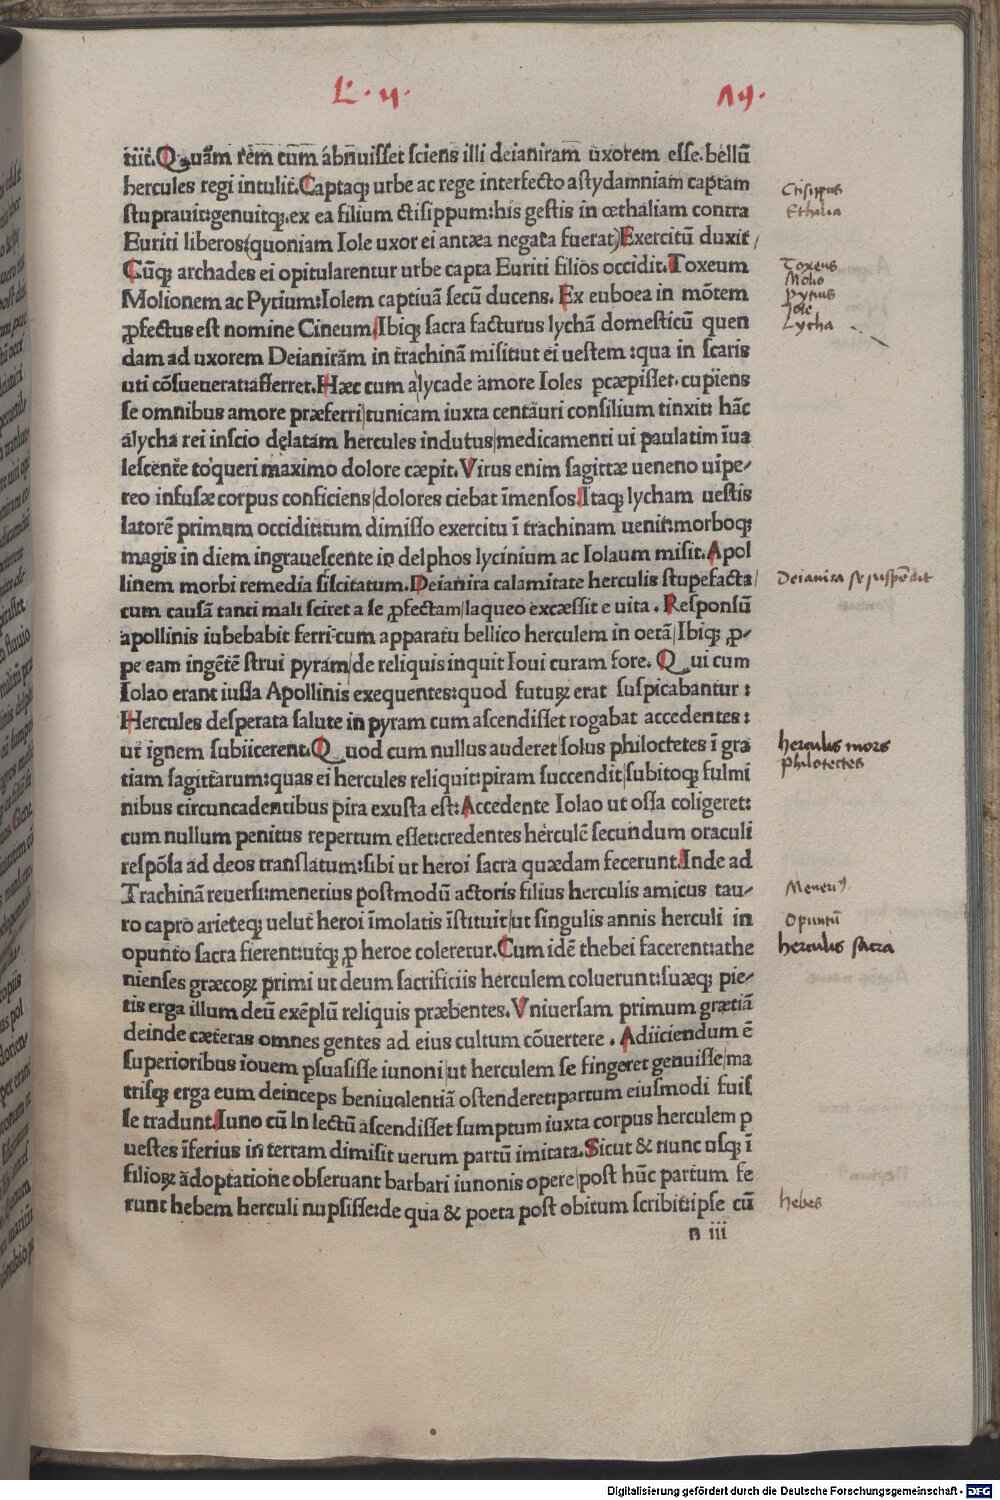 L. 4.
tiit. Quãm rem cum abnuisset sciens illi deianiram uxorem esse. bellũ
hercules regi intulit. Captaqꝫ urbe ac rege interfecto astydamniam captam
stuprauit: genuitqꝫ. ex ea filium ctisippum: his gestis in œthaliam contra
Euriti liberos (quoniam Iole uxor ei antæa negata fuerat) Exercitũ duxit
Cũqꝫ archades ei opitularentur urbe capta Euriti filios occidit. Toxeum
Molionem ac Pytium: Iolem captiuã secũ ducens. Ex euboea in mõtem
ꝓfectus est nomine Cineum Ibiqꝫ sacra facturus lychã domesticũ quen
dam ad uxorem Deianirãm in trachinã misit: ut ei uestem : qua in scaris
uti cõsueuerat: afferret. Hæc cum a lycade amore Ioles pcæpisset. cupiens
se omnibus amore præferri tunicam iuxta centauri consilium tinxit: hãc
alycha rei inscio delatam hercules indutus medicamenti ui paulatim ĩua
lescente to'queri maximo dolore cæpit. Virus enim sagittæ ueneno uipe-
reo infusæ corpus conficiens dolores ciebat ĩmensos. Itaqꝫ lycham uestis
latorẽ primum occidit: tum dimisso exercitu ĩ trachinam uenit: morboqꝫ
magis in diem ingrauescente in delphos lycinium ac Iolaum misit. Apol
linem morbi remedia siscitatum. Deianira calamitate herculis stupefacta
cum causã tanti mali sciret a se ꝓfectam laqueo excæssit e uita . Responsũ
apollinis iubebabit ferri cum apparatu bellico herculem in oetã Ibiqꝫ ꝓ-
pe eam ingẽtẽ strui pyram de reliquis inquit Ioui curam fore. Qui cum
Iolao erant iussa Apollinis exequentes: quod futuꝝ erat suspicabantur :
Hercules desperata salute in pyram cum ascendisset rogabat accedentes :
ut ignem subiicerent. Quod cum nullus auderet solus philoctetes ĩ gra
tiam sagittarum: quas ei hercules reliquit: piram succendit subitoqꝫ fulmi
nibus circuncadentibus pira exusta est: Accedente Iolao ut ossa coligeret:
cum nullum penitus repertum esset: credentes herculẽ secundum oraculi
respõsa ad deos translatum: sibi ut heroi sacra quædam fecerunt. Inde ad
Trachinã reuersi: menetius postmodũ actoris filius herculis amicus tau-
ro capro arieteqꝫ uelut heroi ĩmolatis ĩstituit ut singulis annis herculi in
opunto sacra fierent: utqꝫ ꝓ heroe coleretur. Cum idẽ thebei facerent: athe
nienses græcoꝝ primi ut deum sacrificiis herculem coluerunt: suæqꝫ pie-
tis erga illum deũ exẽplũ reliquis præbentes. Vniuersam primum grætiã
deinde cæteras omnes gentes ad eius cultum cõuertere . Adiiciendum ẽ
superioribus iouem ꝑsuasisse iunoni ut herculem se fingeret genuisse ma
trisqꝫ erga eum deinceps beniuolentiã ostenderet: partum eiusmodi fuis
se tradunt. Iuno cũ in lectũ ascendisset sumptum iuxta corpus herculem ꝑ
uestes ĩferius in terram dimisit uerum partũ imitata. Sicut & nunc usqꝫ ĩ
filioꝝ adoptatione obseruant barbari iunonis opere post hũc partum fe
runt hebem herculi nupsisse: de qua & poeta post obitum scribit: ipse cũ
n iii
Ctisippus
Ethalia
Toxeus
Molio
pytius
Iole
Lycha
Deianira se suspẽdit
herculis mors
philotectes
Opuntũ
herculis sacra
hebes
Digitalisierung gefördert durch die Deutsche Forschungsgemeinschaft - DFG